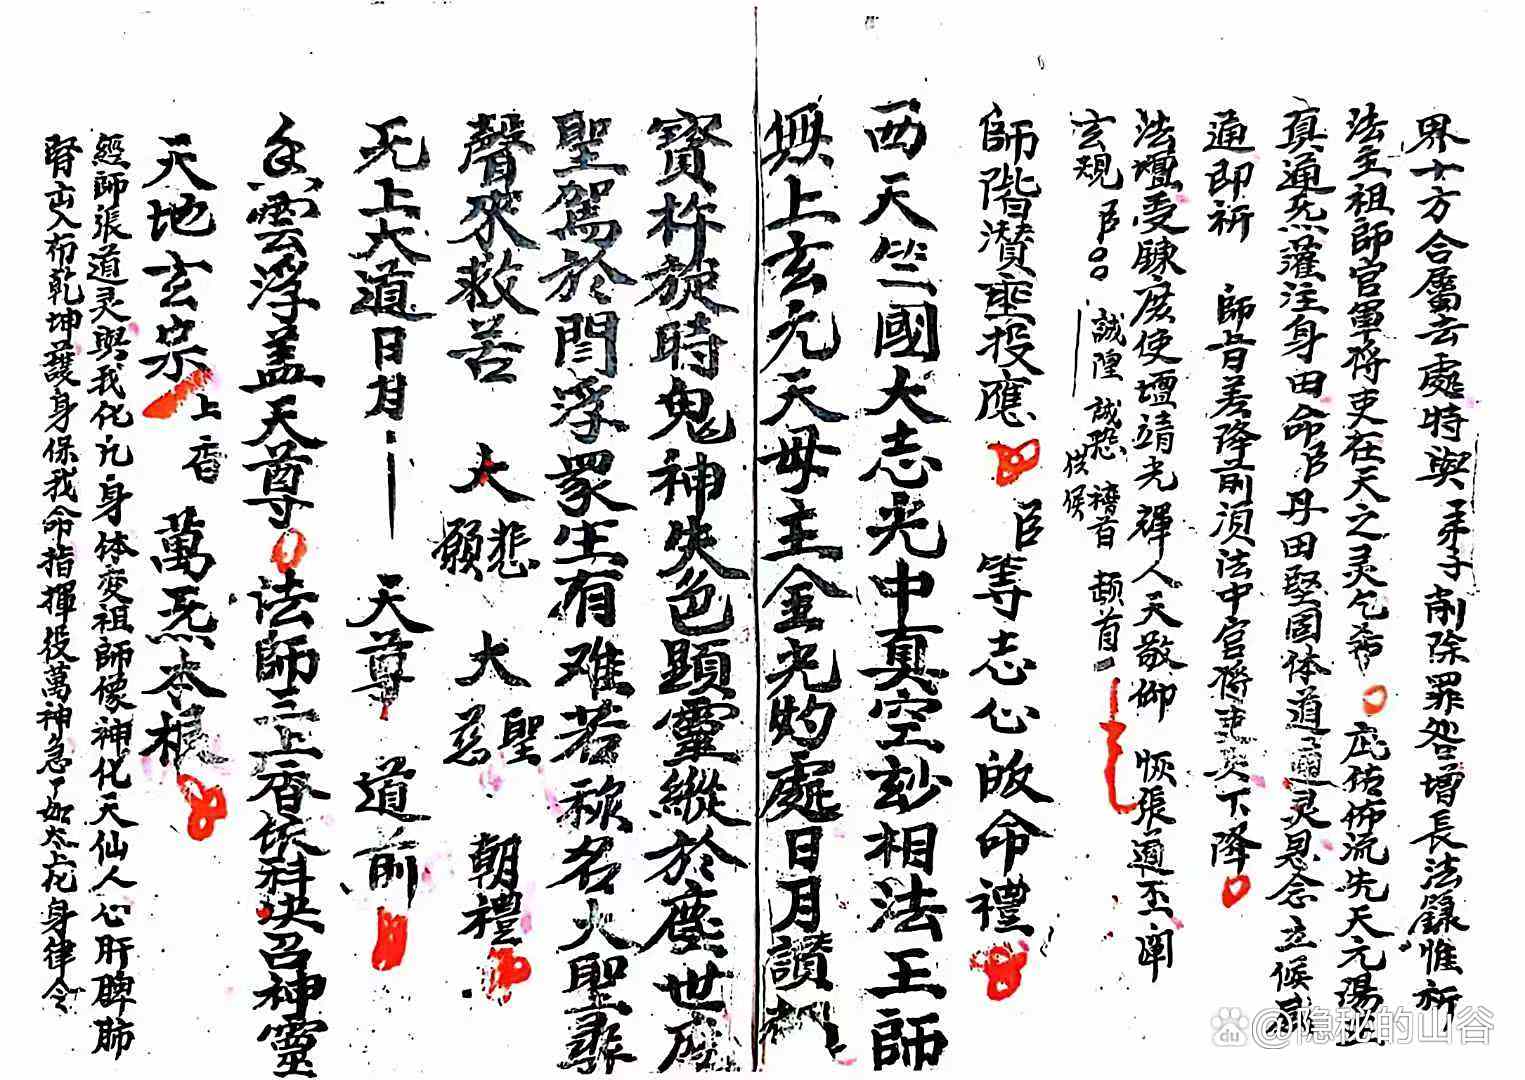 界十方合属去處時與弟子削除罪咎增長法錄惟祈
法主祖師官軍將吏在天之灵乞希 庇佑佈流先天元陽
真通炁灌注身田命臣丹田堅固体道通灵息念立候
通即祈 師旨若降前湏法中官將吏兵下降
法壇受鍊庶使壇靖光輝人天敬仰 恢張道丕闡
玄規 臣 誠隍誠恐稽首頓首
俟候
師階濽垂投應 臣等志心皈命禮
西天竺國大志光中真空玅相法王師
無上玄元天母主金光灼處日月讃
寳杵旋時鬼神失色顯靈縱於塵世
聖駕於閆浮眾生有难若称名大聖尋
聲來救苦 大悲願 大聖慈 朝禮
旡上大道日月 天尊 道前
香雲浮盖天尊 法師三上香依科
召神靈
天地玄宗 上香 萬炁本根
經師張道灵與我化凢身体变祖師像神化天仙人心肝脾肺
腎出入布乾坤護身保我命指揮役萬神急了如太上
身律令
@隐秘的山谷